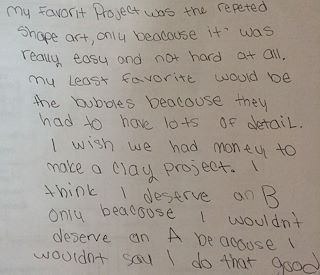 my favorit Project was the repeted
shape art, only beacouse it was
really easy and not hard at all.
my least favorite would be
the bubbles beacouse they
had to have lots of detail.
I wish we had money to
make a clay project. I
think I deserve an B
only beacoose I wouldnt
deserve an A beacouse I
wouldnt say I do that good